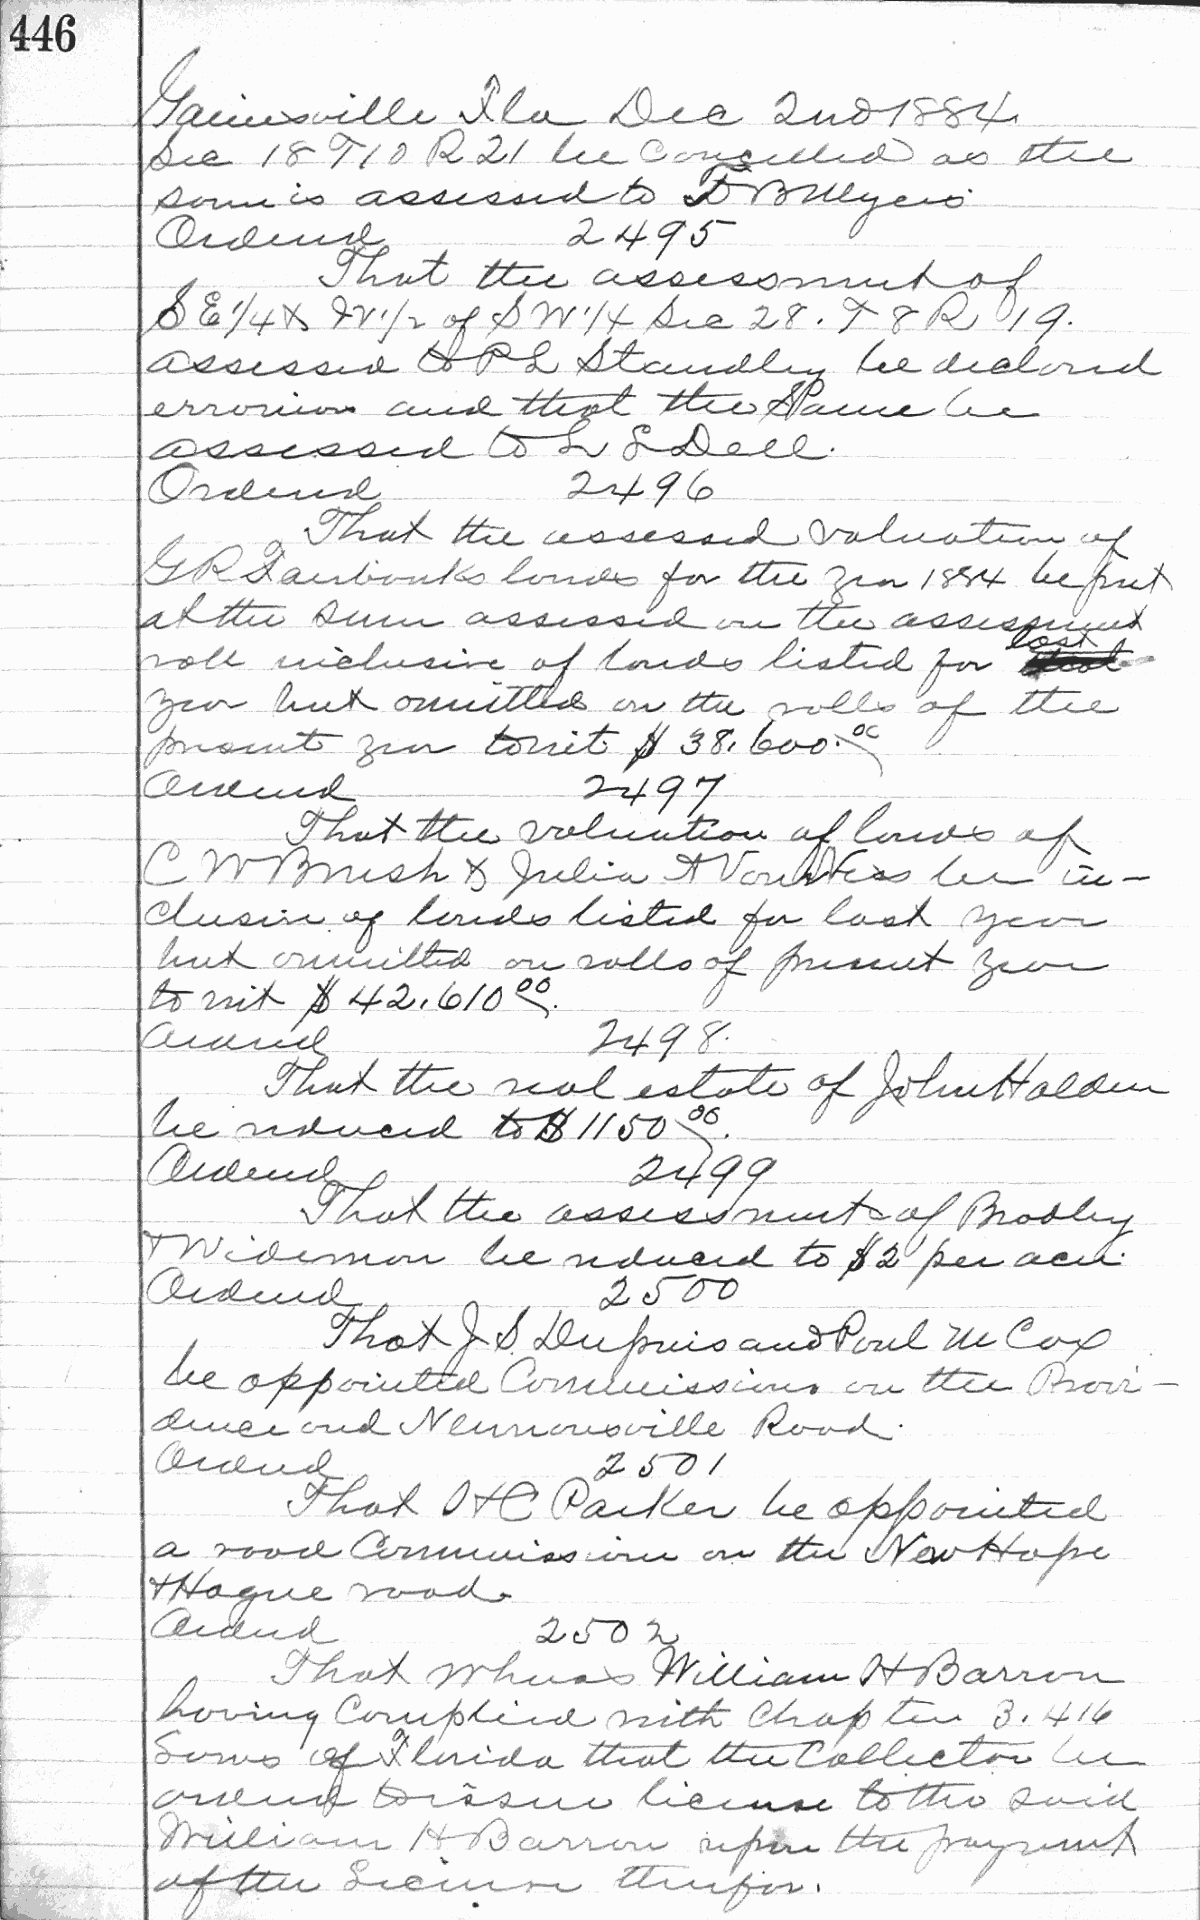 446
Gainesville Fla Dec 2nd 1884
Sec 18 T10 R 21 be Cancelled as the
same is assessed to F B Myers
Ordered 2495
That the assessment of
S E 1/4 & W 1/2 of S W 1/4 Sec 28. T 8 R 19.
assessed to P L Standley be declared
erronious and that the Same be
assessed to L L Dell.
Ordered 2496
That the assessed valuation of
G R Fairbanks lands for the year 1884 be put
at the sum assessed on the assessment
roll inclusive of lands listed for last
year but omitted on the rolls of the
present year towit $ 38.600.00
Ordered 2497
That the valuation of lands of
C W Brush & Julia A Van Ness be in-
clusive of lands listed for last year
but ommitted on rolls of present year
to wit $ 42.610 00.
Ordered 2498.
That the real estate of John Halden
be reduced to $ 1150 00.
Ordered 2499
That the assessments of Bradley
& Wideman be reduced to $2 per acre.
Ordered 2500
That J. S. Dupuis and Paul McCox
be appointed Commissioners on the Provi-
dence and Newnansville Road.
Ordered 2501
That H C Parker be appointed
a road Commissioner on the New Hope
& Hague road.
Ordered 2502
That Whereas William H Barron
having Complied with Chapter 3.416
Laws of Florida that the Collector be
ordered to issue license to the said
William H Barron upon the payment
of the License therefor.